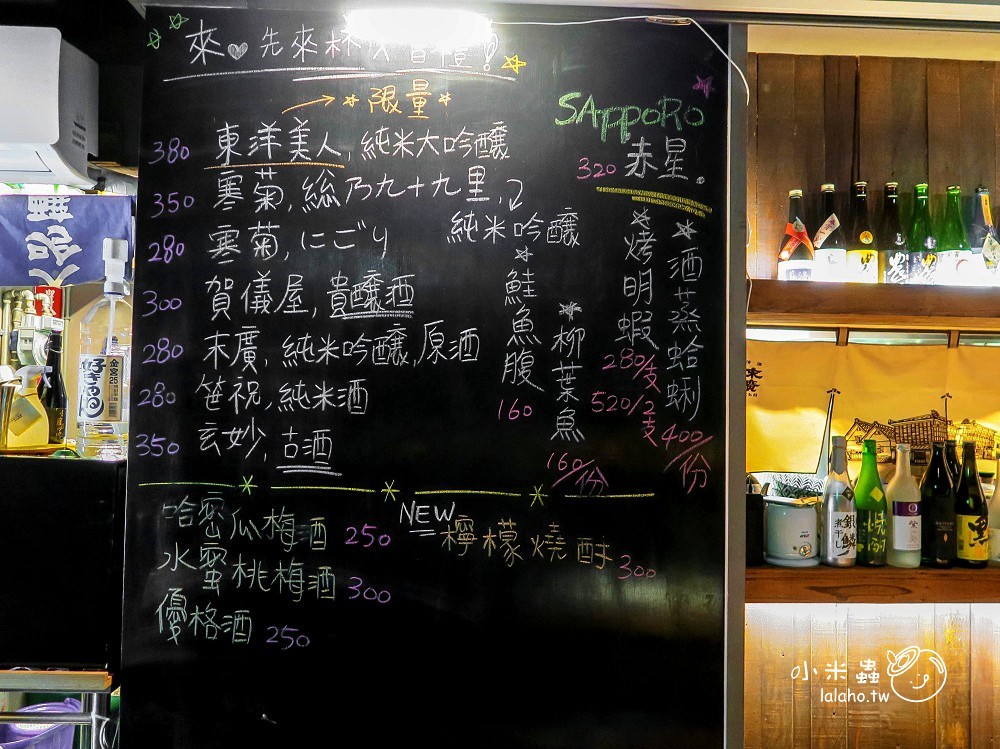 來♡先來杯
限量
380 東洋美人,純米大吟醸
350 寒菊,総乃九十九里,
純米吟醸
280 寒菊,にごり
300 賀儀屋,貴醸酒
280 末廣,純米吟醸,原酒
280 笹祝,純米酒
350 玄妙,古酒
SAppoRo
320 赤星.
酒蒸蛤蜊
400/份
烤明蝦
280/支
520/2支
柳葉魚
160/份
鮭魚腹
160
哈密瓜梅酒 250
水蜜桃梅酒 300
優格酒 250
NEW
檸檬燒酎 300
金宮25
好きるん
銀鱗
煮干し
黒
小米蟲
lalaho.tw